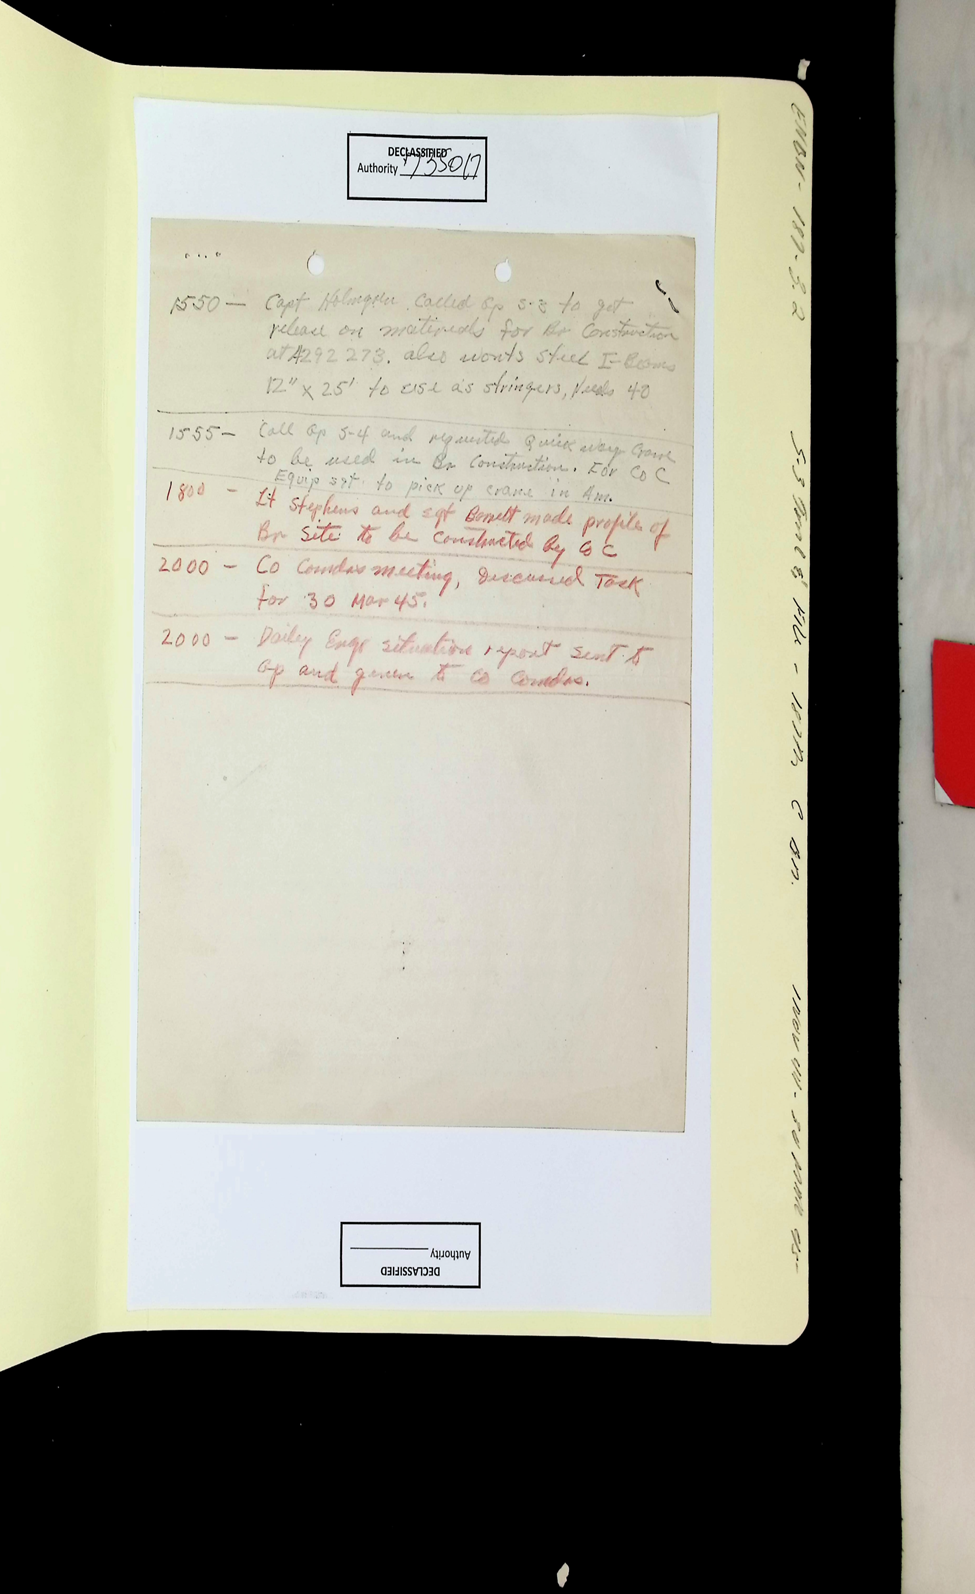 DECLASSIFIED
Authority 735017
1550 — Capt Holmgren called Gp S-3 to get
release on materials for Br Construction
at A292 273. also wants steel I-Beams
12" x 25' to use as stringers, Needs 40
1555 — Call Gp S-4 and requested Quick way Crane
to be used in Br Construction. For Co C
Equip sgt to pick up crane in Am.
1800 — Lt Stephens and sgt made profiles of
Br Site to be constructed by Co C
2000 — Co Comdrs meeting, Discussed Task
for 30 Mar 45.
2000 — Dailey Engr situation report sent to
Gp and given to Co Comdrs.
Authority
DECLASSIFIED
ENBN-187-3.2
S-3 File - 187th C Bn.